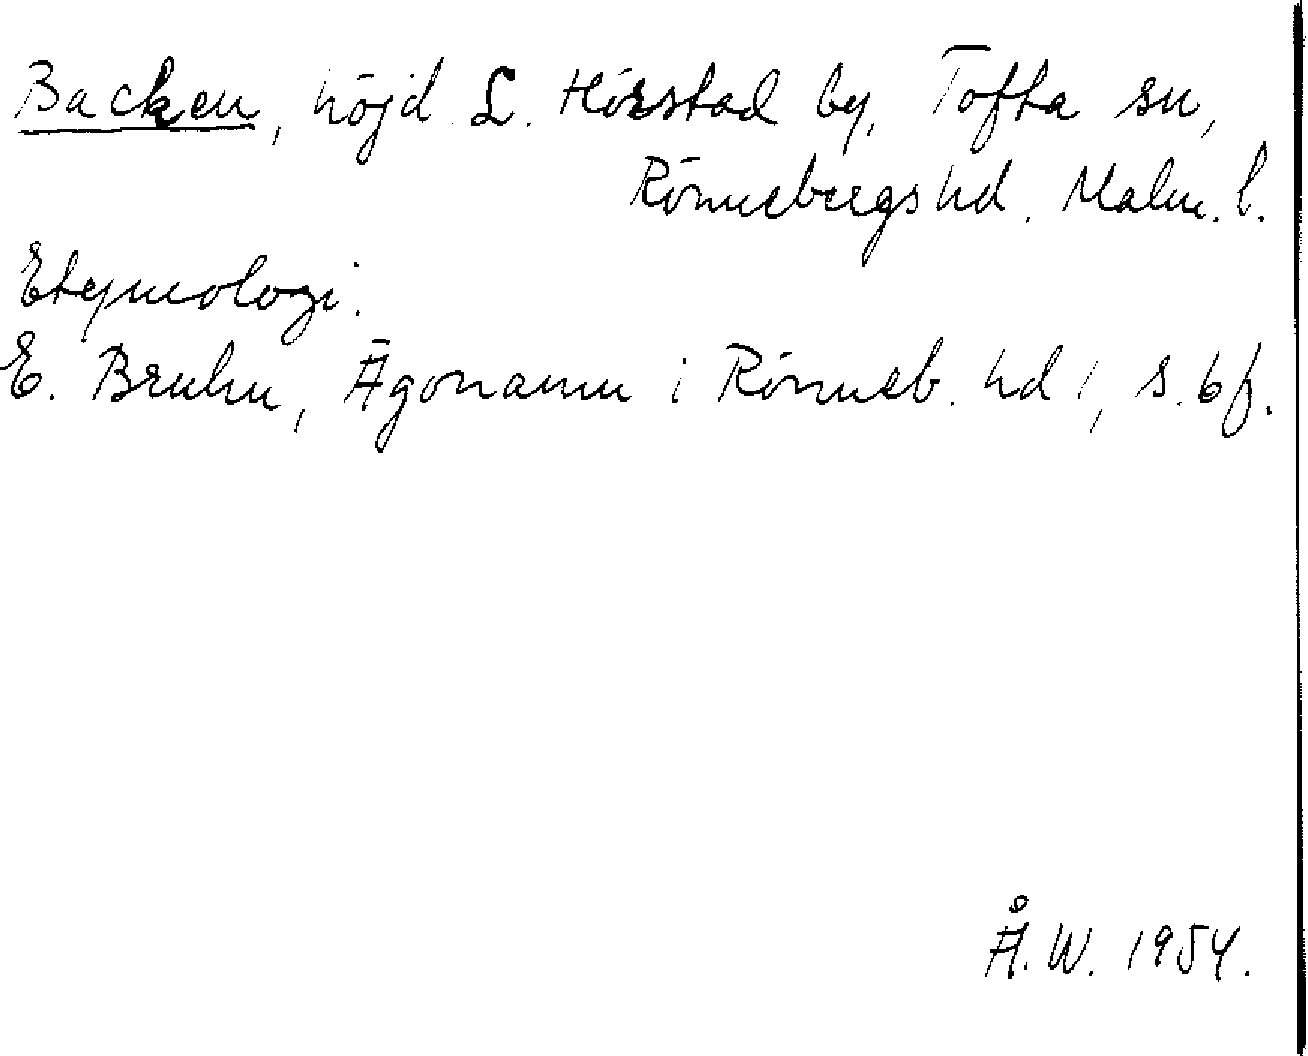 Backen, höjd L. Hörstad by, Tofta sn,
Rönnebergs hd. Malm. l.
Etymologi.
E. Bruhn, Ägonamn i Rönneb. hd 1, s. 6 f.
Å. W. 1954.